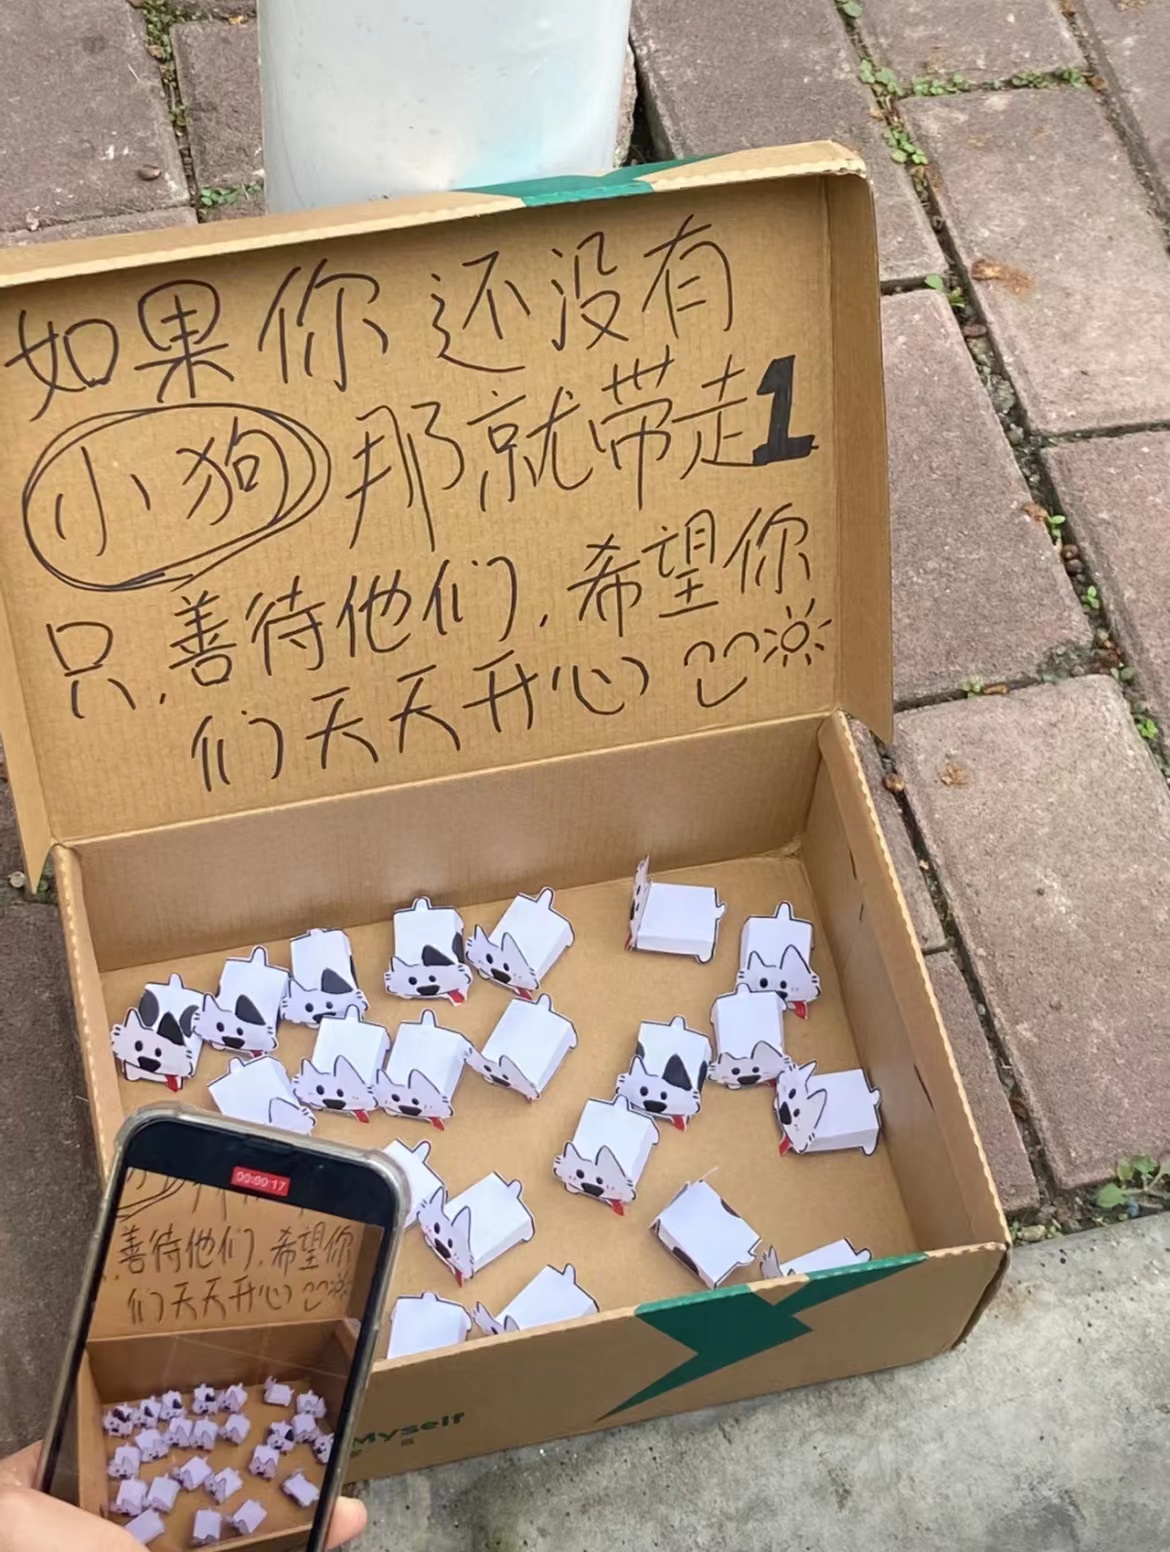 如果你还没有
小狗那就带走1
只,善待他们,希望你
们天天开心
00:00:17
善待他们,希望你
们天天开心
Myself